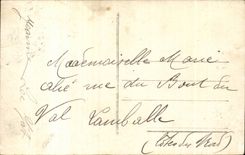 Mademoiselle Marie
rue du Bout du
Val Lamballe
(Côtes du Nord)